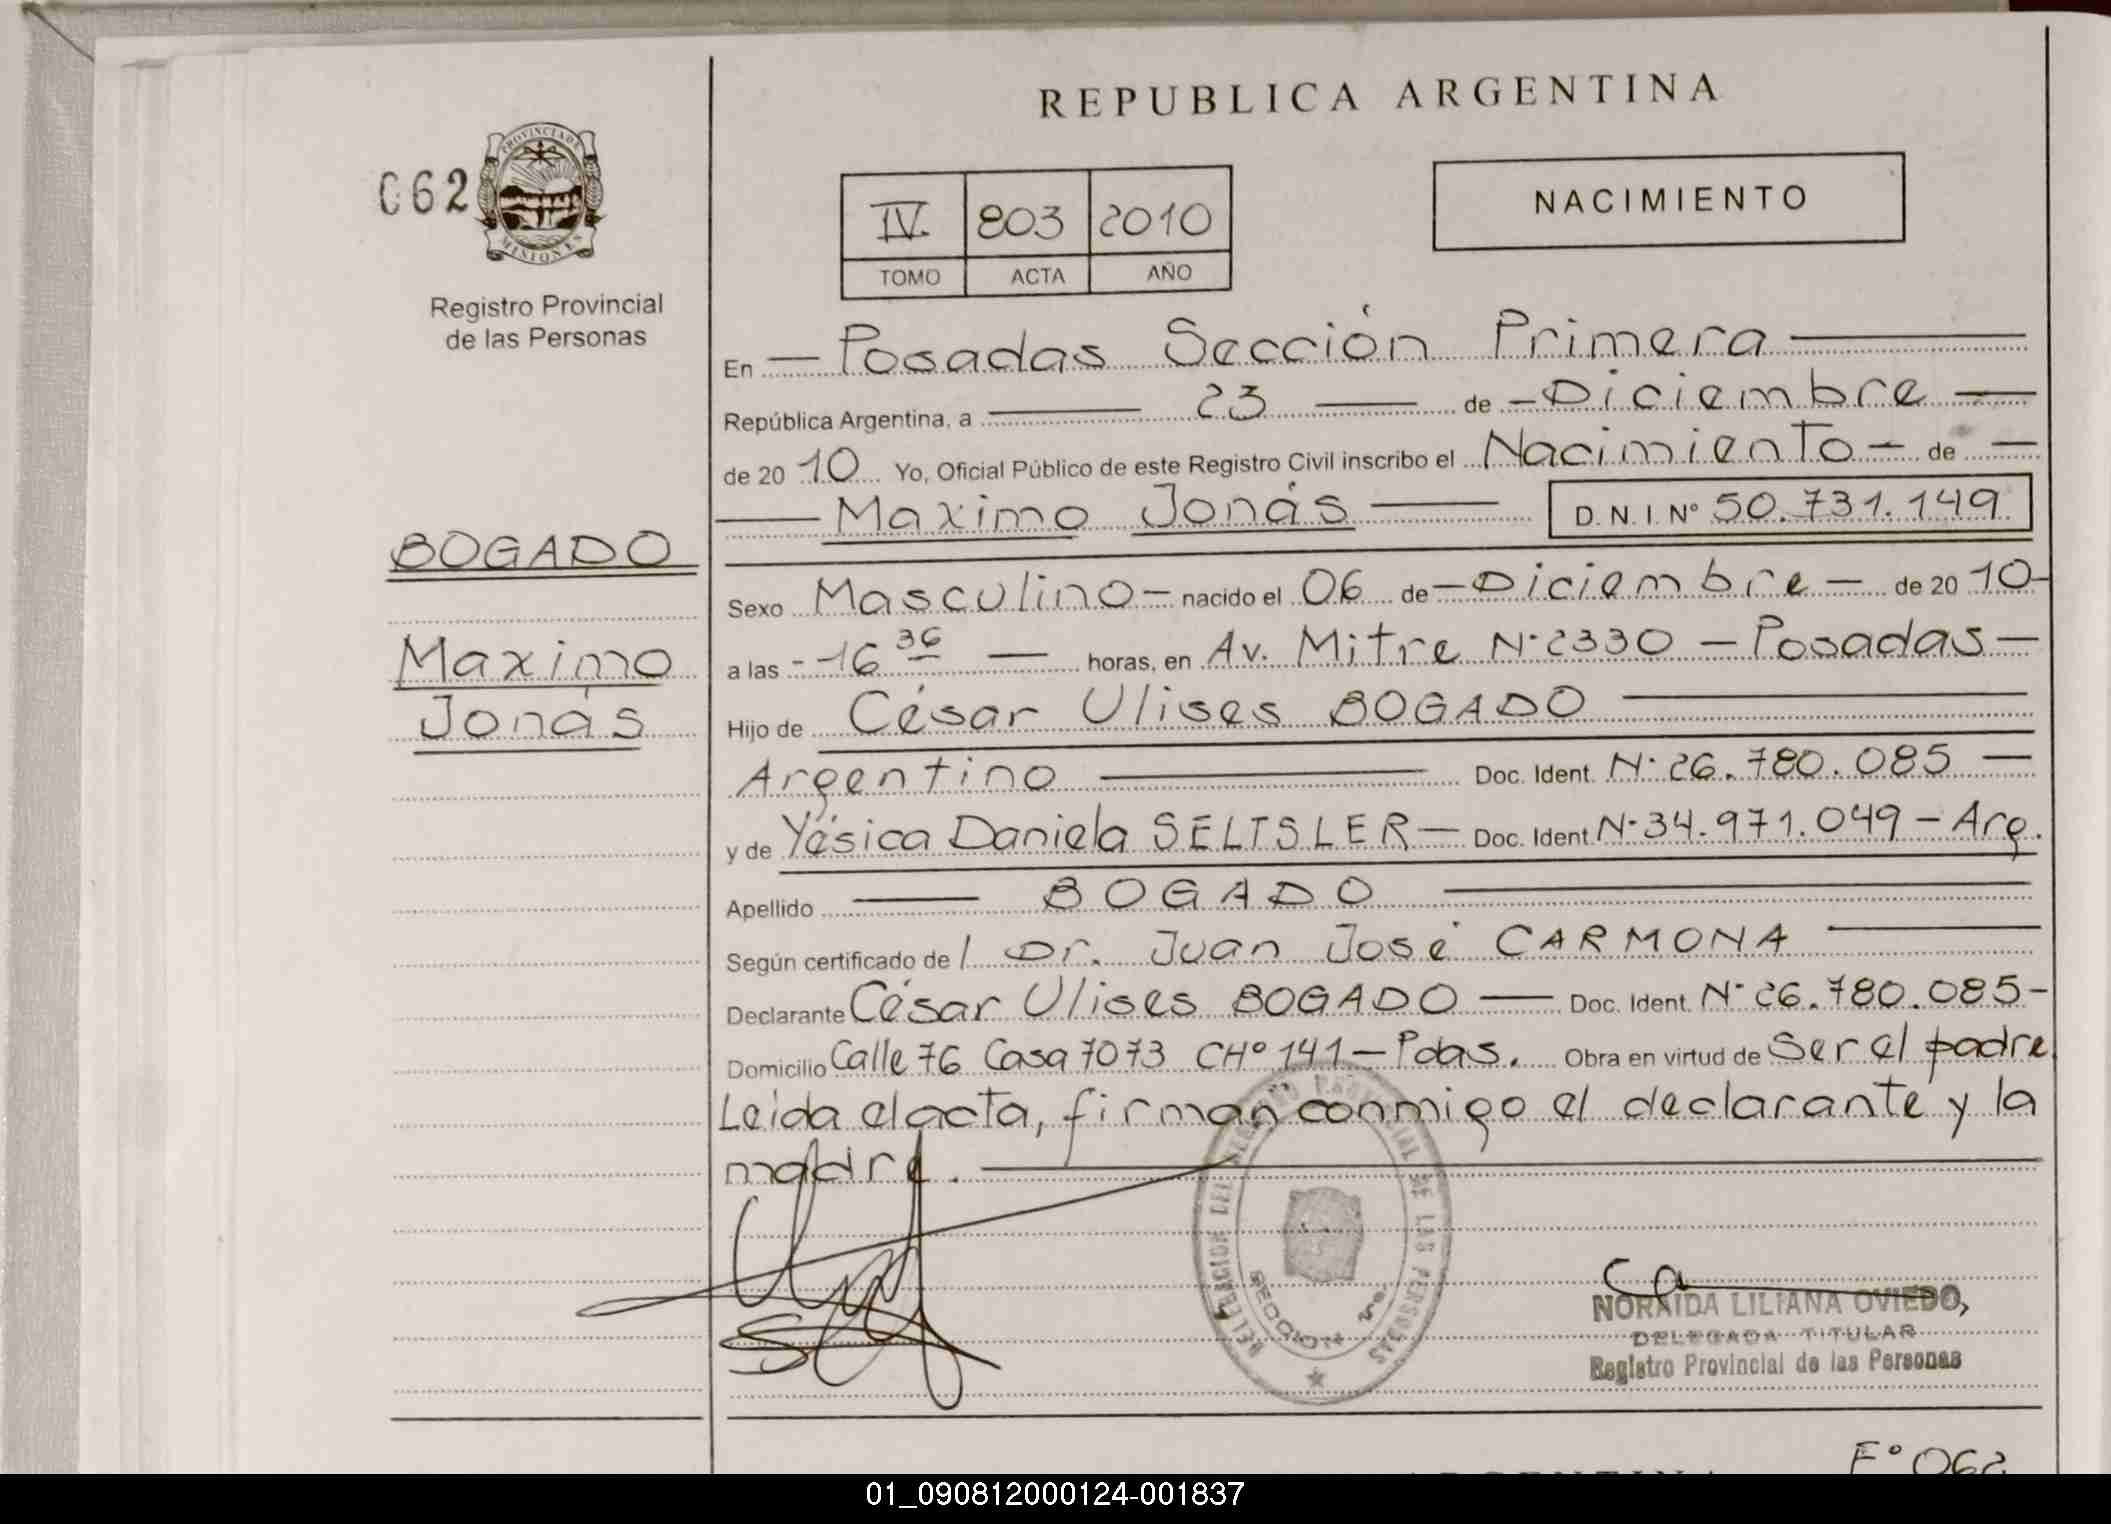 REPUBLICA ARGENTINA
062
PROVINCIA DE
MISIONES
Registro Provincial
de las Personas
IV. 803 2010
TOMO ACTA AÑO
NACIMIENTO
En — Posadas Sección Primera —
República Argentina, a — 23 — de — Diciembre —
de 20 10 Yo, Oficial Público de este Registro Civil inscribo el Nacimiento — de —
— Maximo Jonás — D.N.I. Nº 50.731.149
BOGADO
Maximo
Jonás
Sexo Masculino — nacido el 06 de — Diciembre — de 20 10 —
a las - 16 36 — horas, en Av. Mitre N° 2330 — Posadas —
Hijo de César Ulises BOGADO —
Argentino — Doc. Ident. N° 26.780.085 —
y de Yésica Daniela SELTSLER — Doc. Ident. N° 34.971.049 - Arg.
Apellido — BOGADO —
Según certificado de l Dr. Juan José CARMONA —
Declarante César Ulises BOGADO — Doc. Ident. N° 26.780.085 -
Domicilio Calle 76 Casa 7073 CHº 141 - Pdas. Obra en virtud de Ser el padre
Leida el acta, firman conmigo el declarante y la
madre. —
DELEGACION DEL REGISTRO PROVINCIAL DE LAS PERSONAS
SECCION
NORAIDA LILIANA OVIEDO,
DELEGADA TITULAR
Registro Provincial de las Personas
Fº 062
01_090812000124-001837